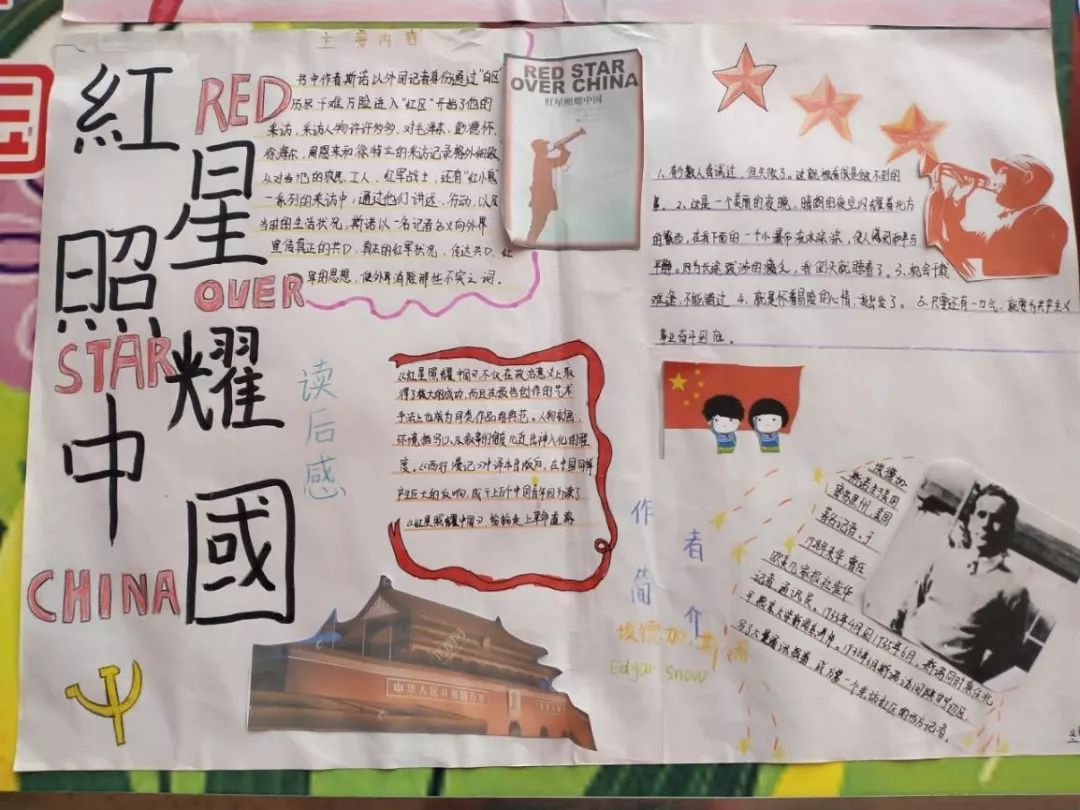 紅星照耀中國
RED
OVER
STAR
CHINA
主要内容
书中作者斯诺以外国记者身份通过"白区"
历尽千难万险进入"红区"开始了他的
采访,采访人物许许多多,对毛泽东,彭德怀,
徐海东,周恩来和徐特立的采访记录格外细致,
从对当地的农民,工人,红军战士,还有"红小鬼"
一系列的采访中,通过他们讲述,行动,以及
当时的生活状况,斯诺以一名记者名义向外界
宣传真正的共D,真正的红军状况,传达共D,红
军的思想,使外界消除那些不实之词.
RED STAR
OVER CHINA
红星照耀中国
1.有少数人尝试过,但失败了。这就被看成是做不到的
事。2.这是一个美丽的夜晚,晴朗的夜空闪耀着北方
的繁星,在我下面的一个小瀑布在淙淙,使人感到和平与
平静。因为长途跋涉的疲乏,我倒头就睡着了。3.机会千载
难逢,不能错过 4.就是怀着冒险的心情,我出发了。5.只要还有一口气,就要为共产主义
事业奋斗到底。
读后感
《红星照耀中国》不仅在政治意义上取
得了极大的成功,而且在报告创作的艺术
手法上也成为同类作品的典范。人物刻画,
环境描写以及叙事的角度几近出神入化的程
度。《西行漫记》中译本出版后,在中国同样
产生巨大的反响,成千上万个中国青年因为读了
《红星照耀中国》纷纷走上革命道路
中华人民共和国万岁
作者简介
埃德加.斯诺
Edgar Snow
埃德加
斯诺生于美国
密苏里州,美国
著名记者。于
1928年来华,曾任
欧美几家报社驻华
记者、通讯员。1933年4月到1935年6月,斯诺同时兼任北
平燕京大学新闻系讲师。1936年6月斯诺访问陕甘边区,
写了大量通讯报道,成为第一个采访红区的西方记者。